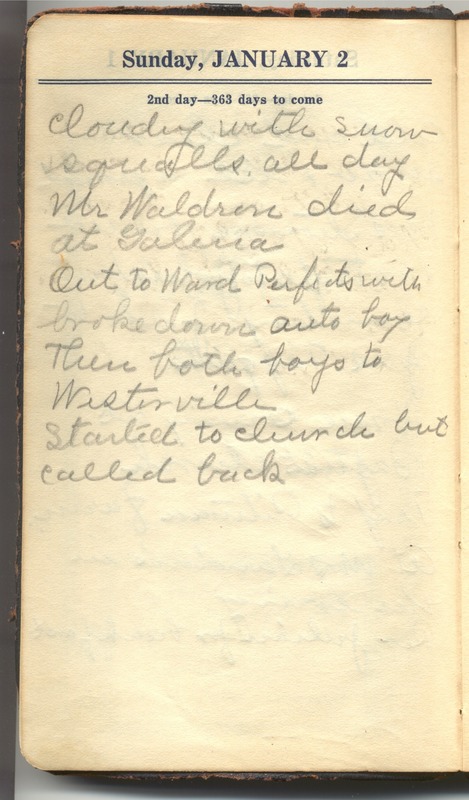 Sunday, JANUARY 2
2nd day—363 days to come
cloudy with snow
squalls all day
Mr Waldron died
at Galena
Out to Ward Perfects with
broke down auto boy
Then both boys to
Westerville
Started to church but
called back